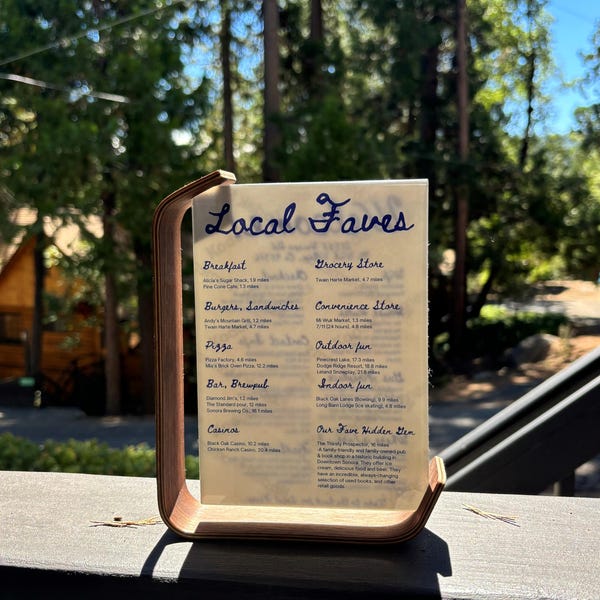 Local Faves
Breakfast
Alicia's Sugar Shack, 1.9 miles
Pine Cone Cafe, 1.3 miles
Burgers, Sandwiches
Andy's Mountain Grill, 1.2 miles
Twain Harte Market, 4.7 miles
Pizza
Pizza Factory, 4.6 miles
Mia's Brick Oven Pizza, 12.2 miles
Bar, Brewpub
Diamond Jim's, 1.2 miles
The Standard pour, 12 miles
Sonora Brewing Co., 16.1 miles
Casinos
Black Oak Casino, 10.2 miles
Chicken Ranch Casino, 20.4 miles
Grocery Store
Twain Harte Market, 4.7 miles
Convenience Store
Mi Wuk Market, 1.3 miles
7/11 (24 hours), 4.8 miles
Outdoor fun
Pinecrest Lake, 17.3 miles
Dodge Ridge Resort, 18.8 miles
Leland Snowplay, 21.8 miles
Indoor fun
Black Oak Lanes (Bowling), 9.9 miles
Long Barn Lodge (ice skating), 4.8 miles
Our Fave Hidden Gem
The Thirsty Prospector, 16 miles
-A family-friendly and family owned pub
& book shop in a historic building in
Downtown Sonora. They offer ice
cream, delicious food and beer. They
have an incredible, always-changing
selection of used books, and other
retail goods.